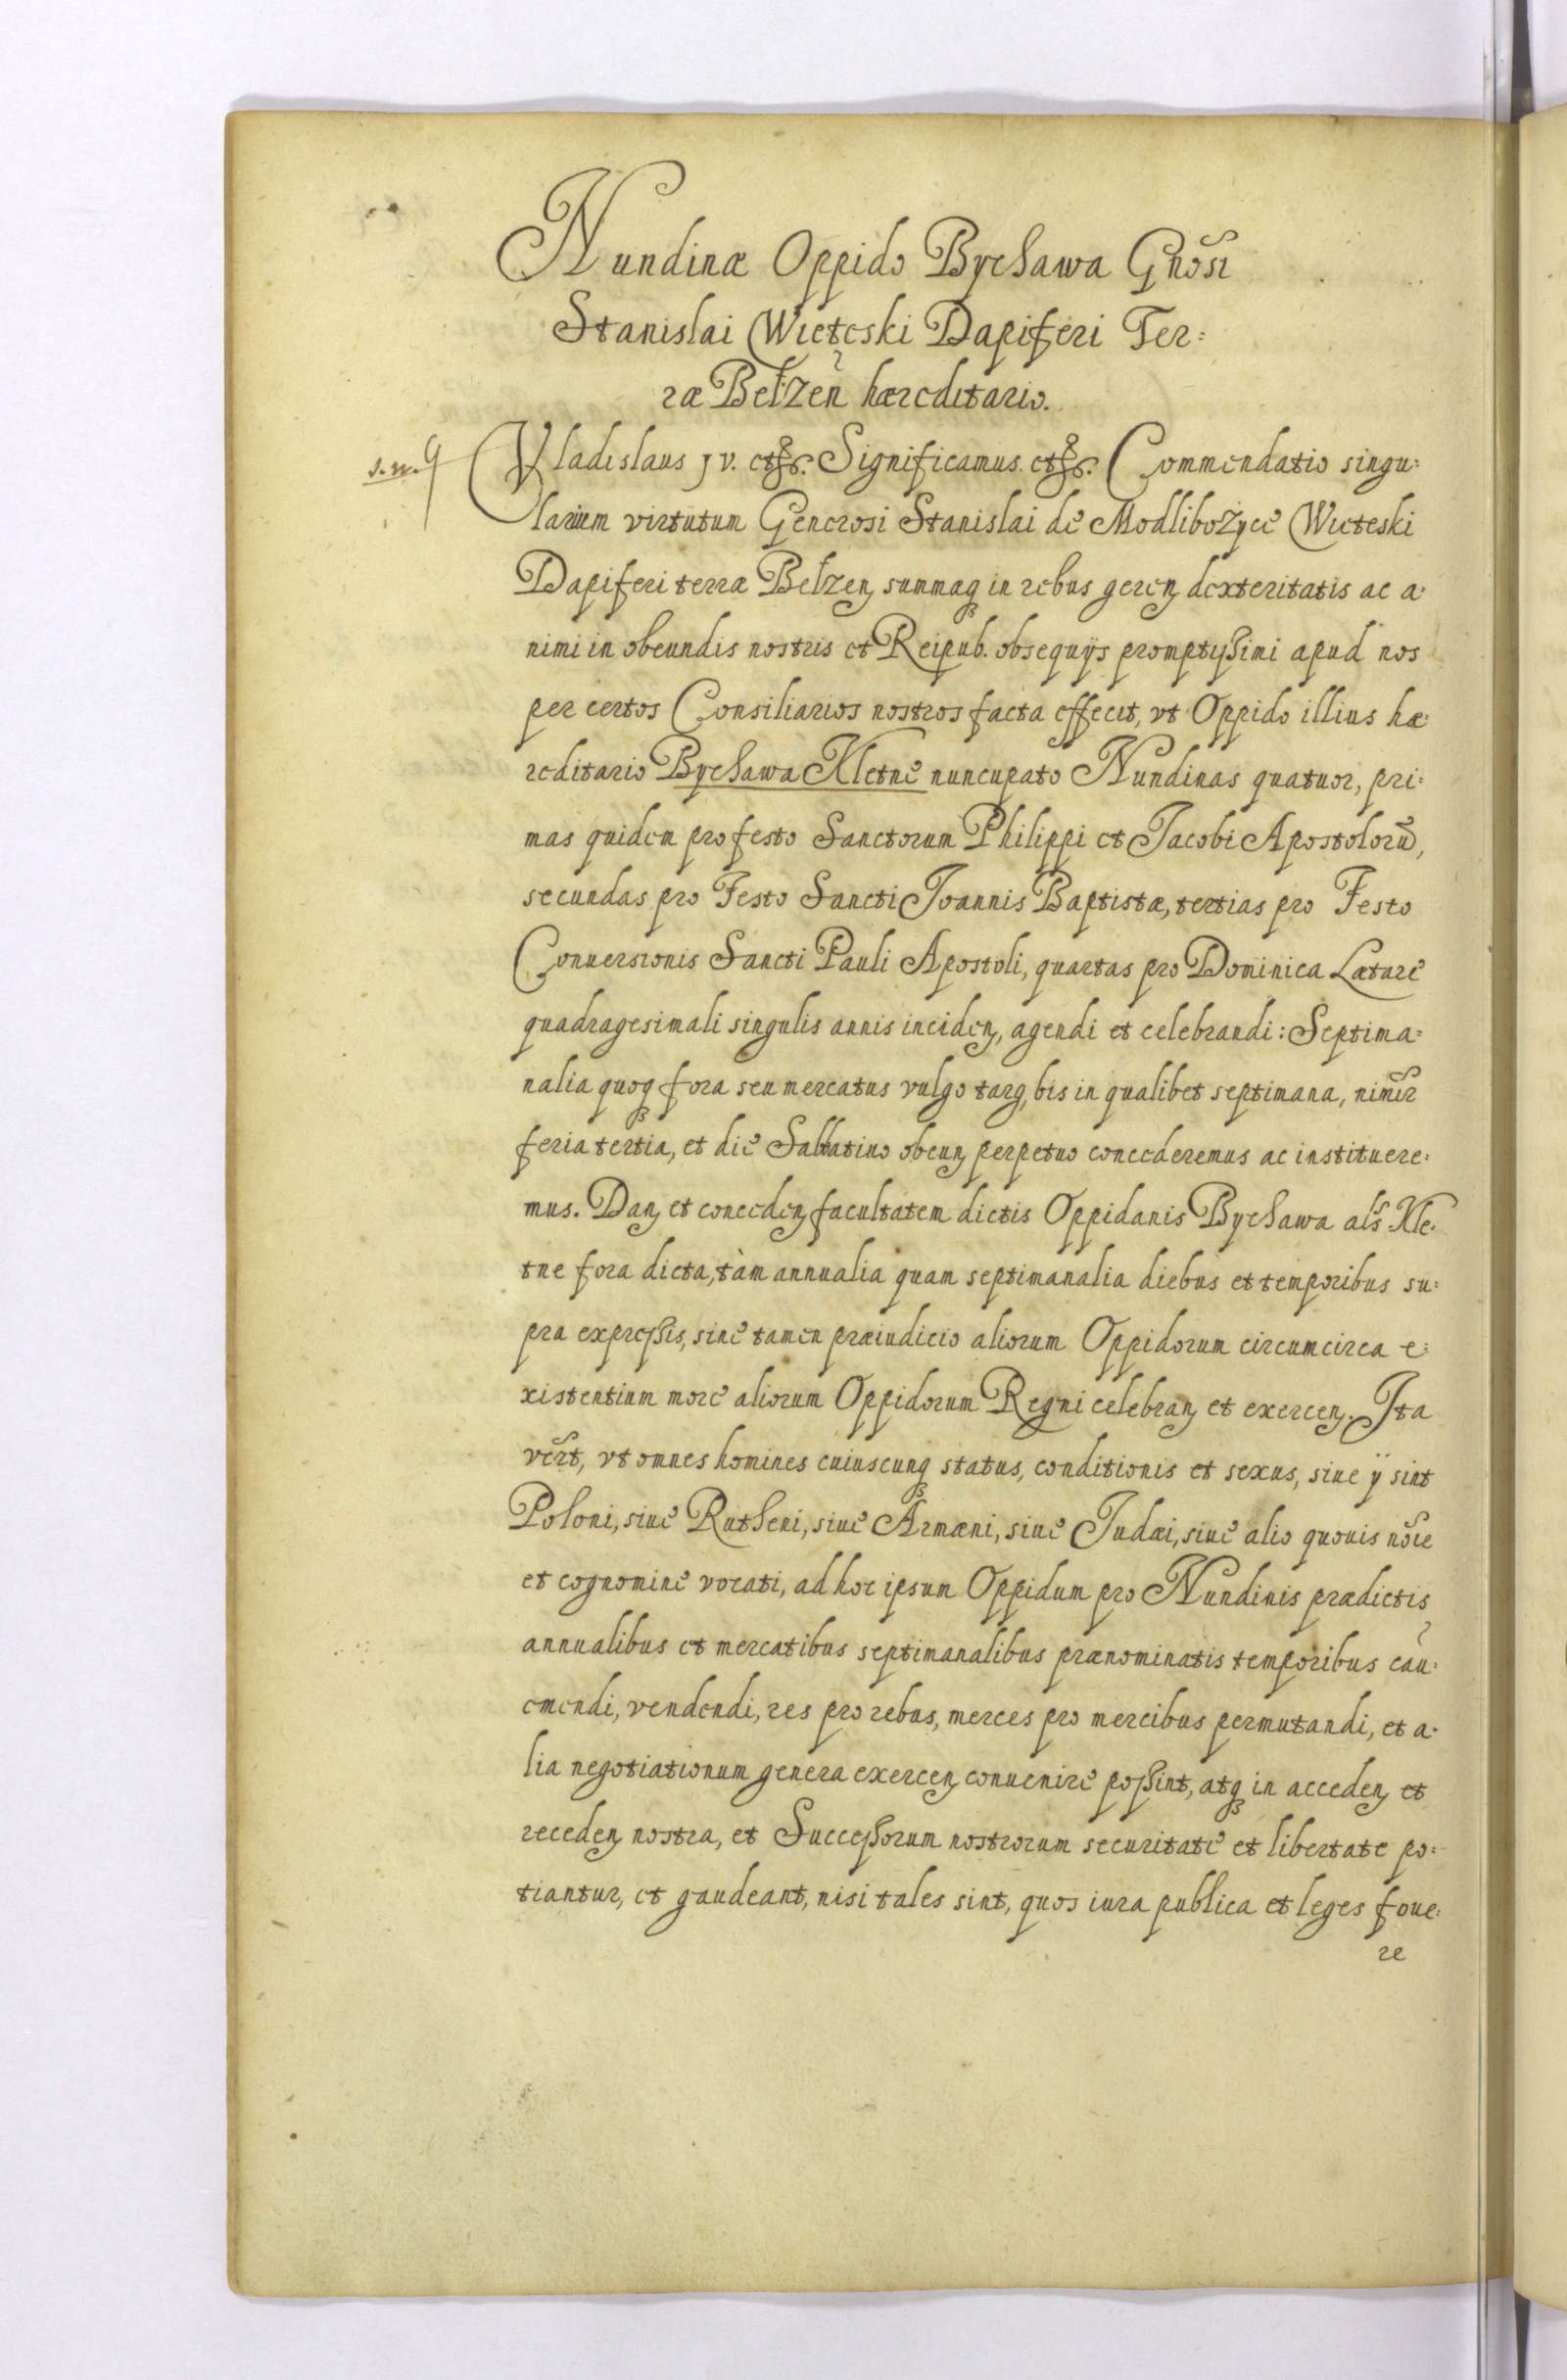 Nundinæ Oppido Bychawa Gnõsi
Stanislai Wieteski Dapiferi Ter:
ræ Bełzeñ hæreditario.
Vladislaus jv. etc. Significamus. etc. Commendatio singu:
larium virtutum Generosi Stanislai de Modlibożyce Wieteski
Dapiferi terræ Bełzeñ, summaq₃ in rebus gereñ dexteritatis ac a:
nimi in obeundis nostris et Reipub. obsequijs promptissimi apud nos
per certos Consiliarios nostros facta effecit, vt Oppido illius hæ:
reditario Bychawa Kletne nuncupato Nundinas quatuor, pri:
mas quidem pro festo Sanctorum Philippi et Jacobi Apostolorũ,
secundas pro Festo Sancti Joannis Baptistæ, tertias pro Festo
Conuersionis Sancti Pauli Apostoli, quartas pro Dominica Lætare
quadragesimali singulis annis incideñ, agendi et celebrandi: Septima:
nalia quoq₃ fora seu mercatus vulgo targ, bis in qualibet septimana, nimir̃
feria tertia, et die Sabbatino obeuñ perpetuo concederemus ac institueré:
mus. Dañ et concedeñ facultatem dictis Oppidanis Bychawa als̃ Kle:
tne fora dicta, tàm annualia quam septimanalia diebus et temporibus su:
pra expressis, sine tamen præiudicio aliorum Oppidorum circumcirca e:
xistentium more aliorum Oppidorum Regni celebrañ et exerceñ. Ita
ver̃t, vt omnes homines cuiuscunq₃ status, conditionis et sexus, siue ÿ sint
Poloni, siue Rutheni, siue Armæni, siue Judæi, siue alio quouis nõie
et cognomine vocati, ad hoc ipsum Oppidum pro Nundinis prædictis
annualibus et mercatibus septimanalibus prænominatis temporibus cau:
emendi, vendendi, res pro rebus, merces pro mercibus permutandi, et a:
lia negotiationum genera exerceñ conuenire possint, atq₃ in accedeñ et
recedeñ nostra, et Successorum nostrorum securitate et libertate po:
tiantur, et gaudeant, nisi tales sint, quos iura publica et leges foue:
re